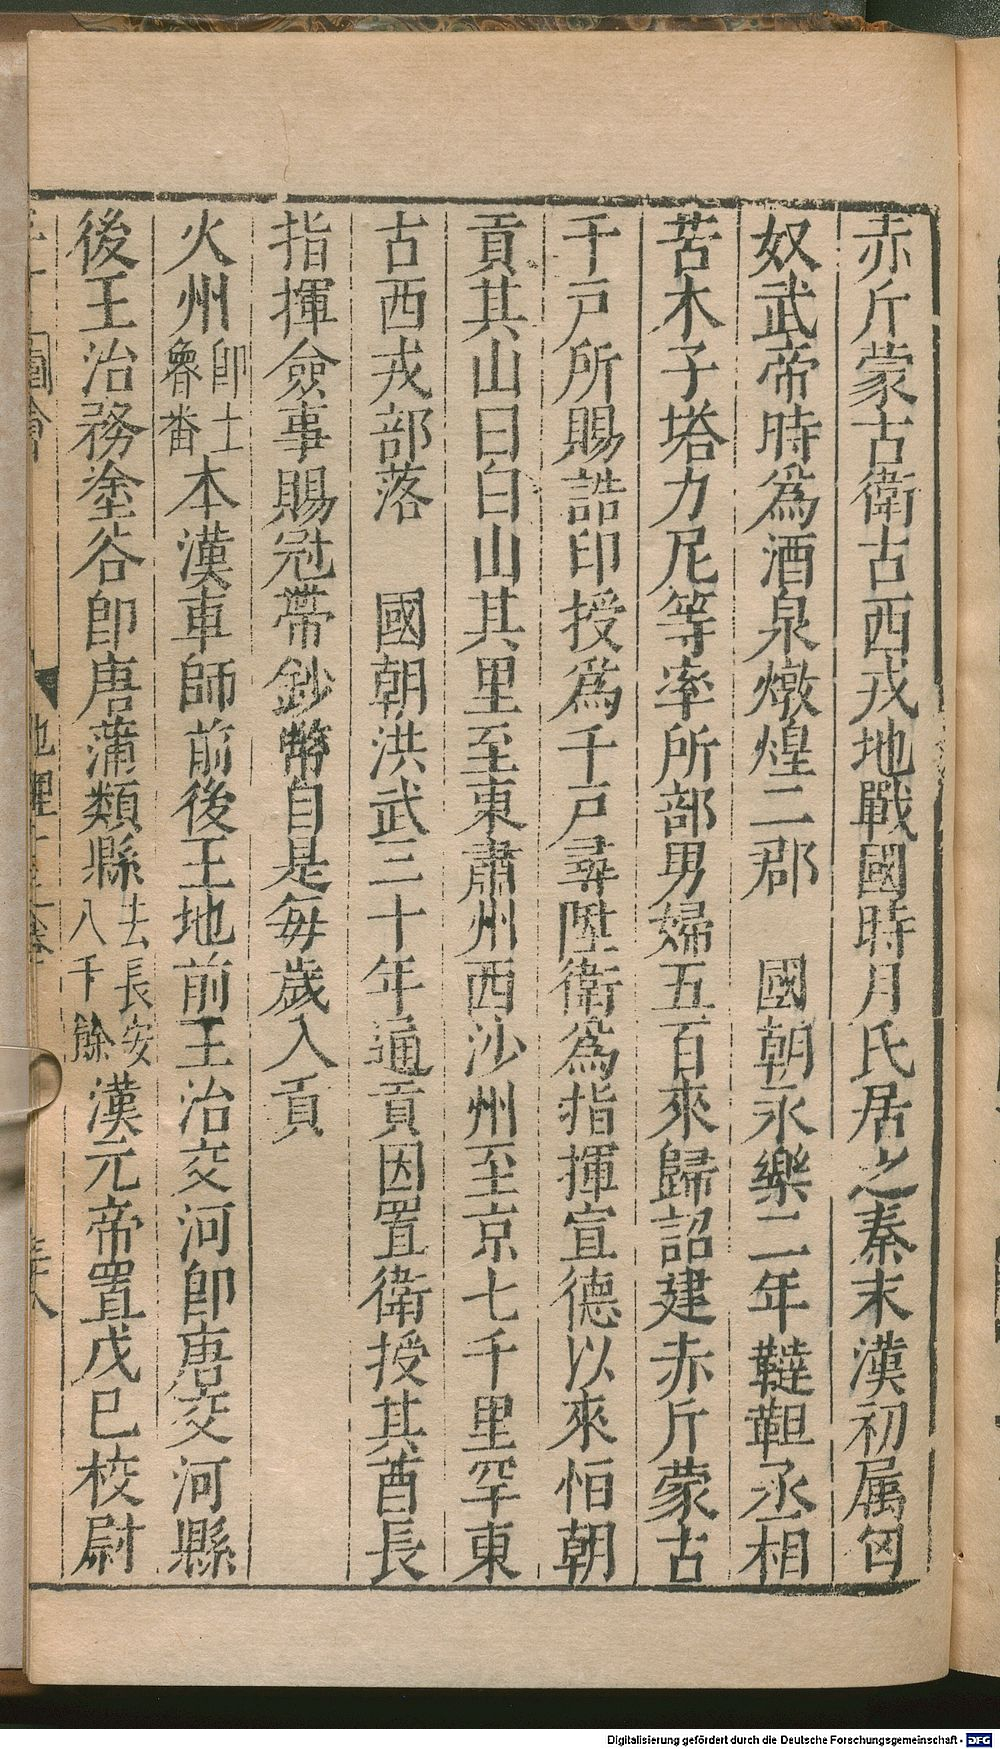 赤斤蒙古衛古西戎地戰國時月氏居之秦末漢初属匈
奴武帝時爲酒泉燉煌二郡　國朝永樂二年韃靼丞相
苦木子塔力尼等率所部男婦五百來歸詔建赤斤蒙古
千戸所賜誥印授爲千戸尋陞衛爲指揮宣德以來怕朝
貢其山曰白山其里至東肅州西沙州至京七千里罕東
古西戎部落　國朝洪武三十年通貢因置衛授其酋長
指揮僉事賜冠帶鈔幣自是每歲入貢
火州即土魯番本漢車師前後王地前王治交河即唐交河縣
後王治務塗谷即唐蒲類縣去長安八千餘漢元帝置戊巳校尉
圖會
地理十三卷
Digitalisierung gefördert durch die Deutsche Forschungsgemeinschaft - DFG